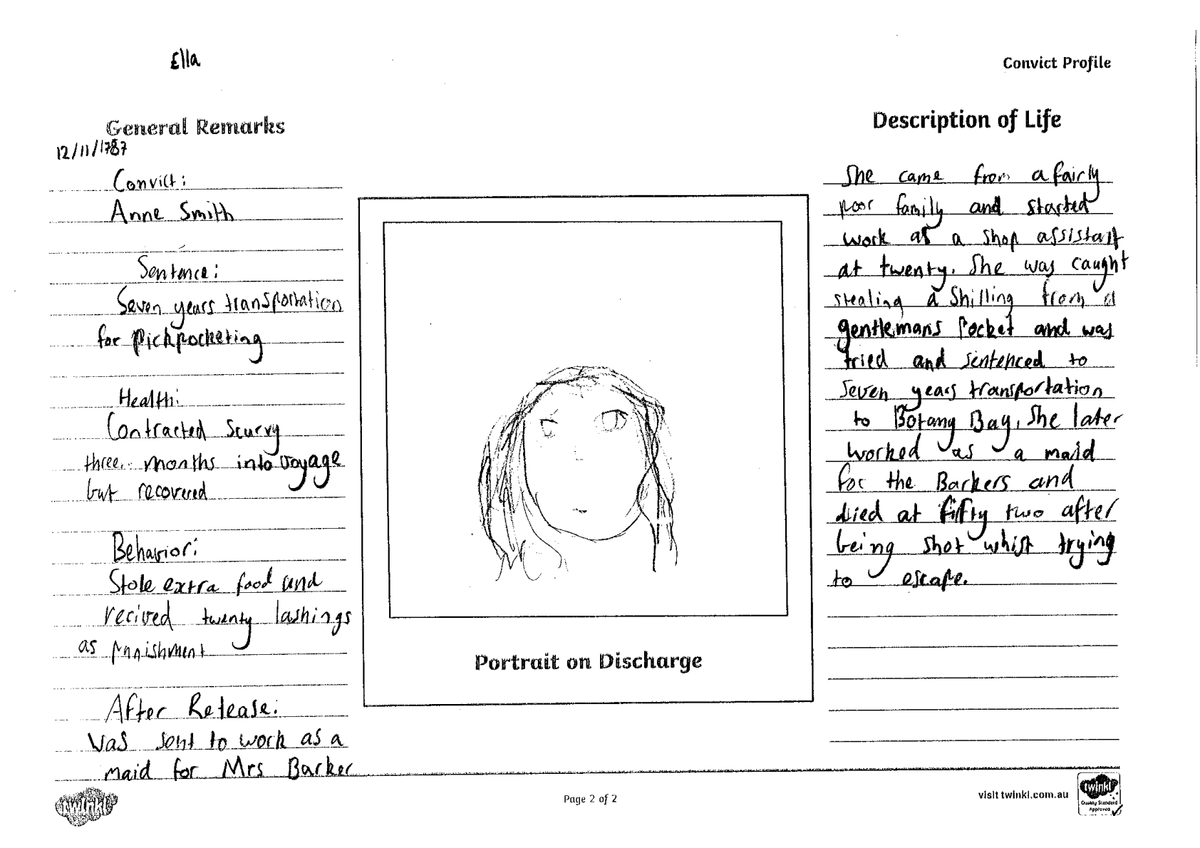 Ella
Convict Profile
General Remarks
12/11/1787
Convict:
Anne Smith
Sentence:
Seven years transportation
for pickpocketing
Health:
Contracted Scurvy
three months into voyage
but recovered
Behavior:
Stole extra food and
recived twenty lashings
as punishment
After Release:
Was sent to work as a
maid for Mrs Barker
Portrait on Discharge
Description of Life
She came from a fairly
poor family and started
work as a shop assistant
at twenty. She was caught
stealing a Shilling from a
gentlemans Pocket and was
tried and sentenced to
seven years transportation
to Botany Bay, She later
worked as a maid
for the Barkers and
died at fifty two after
being shot whist trying
to escape.
twinkl
Page 2 of 2
visit twinkl.com.au
twinkl
Quality Standard
Approved